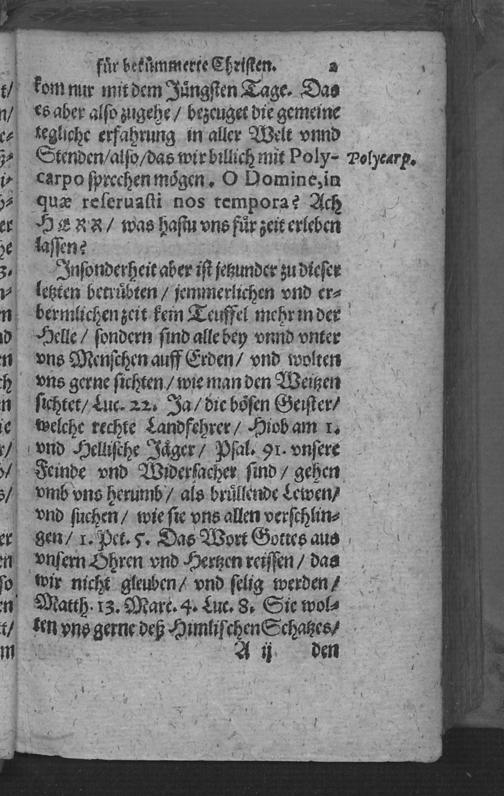 für bekümmerte Christen. 2
kom nur mit dem Jüngsten Tage. Das
es aber also zugehe / bezeuget die gemeine
tegliche erfahrung in aller Welt vnnd
Stenden/also/das wir billich mit Poly-
Polycarp.
carpo sprechen mögen. O Domine, in
quæ reservasti nos tempora? Ach
HERR/ was hastu vns für zeit erleben
lassen?
Insonderheit aber ist jetzunder zu dieser
letzten betrübten / jemmerlichen vnd er-
bermlichen zeit kein Teuffel mehr in der
Helle / sondern sind alle bey vnnd vnter
vns Menschen auff Erden/ vnd wolten
vns gerne sichten/ wie man den Weitzen
sichtet/ Luc. 22. Ja/ die bösen Geister/
welche rechte Landfehrer/ Hiob am 1.
vnd Hellische Jäger/ Psal. 91. vnsere
Feinde vnd Widersacher sind/ gehen
vmb vns herumb/ als brüllende Lewen/
vnd suchen/ wie sie vns allen verschlin-
gen/ 1. Pet. 5. Das Wort Gottes aus
vnsern Ohren vnd Hertzen reissen/ das
wir nicht gleuben/ vnd selig werden/
Matth. 13. Marc. 4. Luc. 8. Sie wol-
ten vns gerne deß Himlischen Schatzes/
A ij den